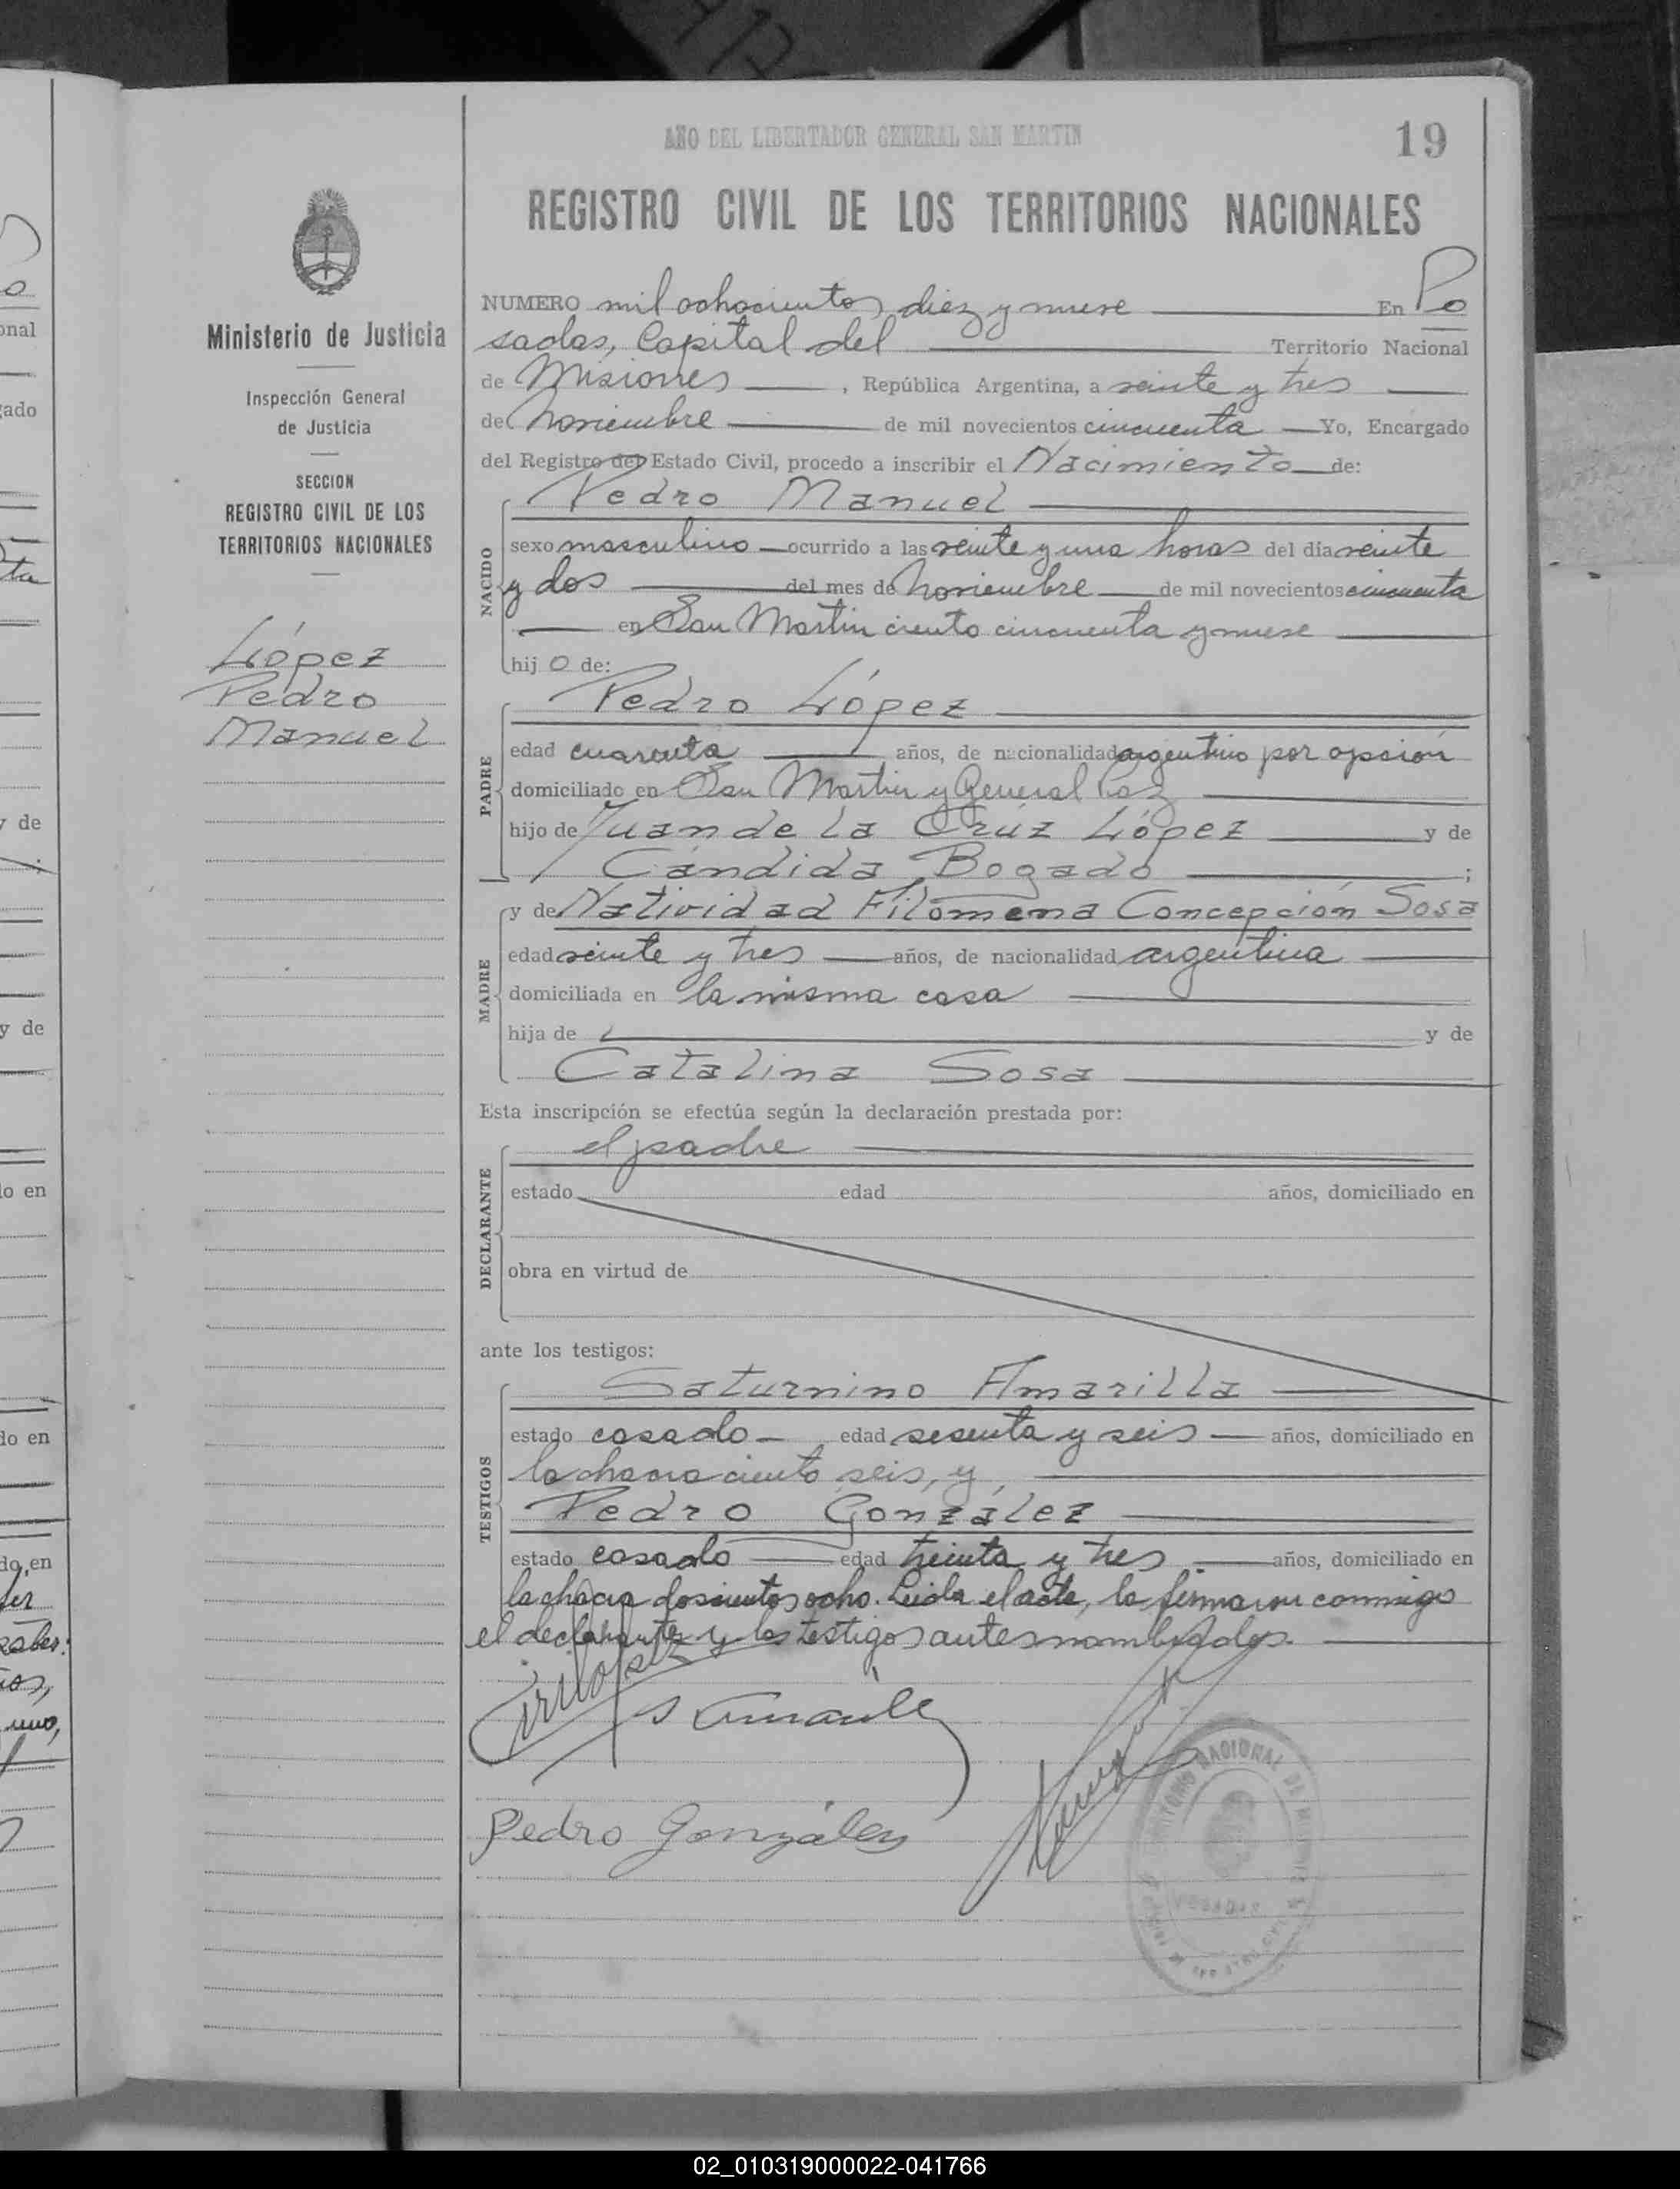 AÑO DEL LIBERTADOR GENERAL SAN MARTIN
19
REGISTRO CIVIL DE LOS TERRITORIOS NACIONALES
Ministerio de Justicia
Inspección General
de Justicia
SECCION
REGISTRO CIVIL DE LOS
TERRITORIOS NACIONALES
López
Pedro
Manuel
NUMERO mil ochocientos diez y nueve En Po
sadas, Capital del Territorio Nacional
de Misiones, República Argentina, a veinte y tres
de Noviembre de mil novecientos cincuenta Yo, Encargado
del Registro del Estado Civil, procedo a inscribir el Nacimiento de:
NACIDO
Pedro Manuel
sexo masculino ocurrido a las veinte y una horas del día veinte
y dos del mes de Noviembre de mil novecientos cincuenta
en San Martin ciento cincuenta y nueve
hij o de:
PADRE
Pedro López
edad cuarenta años, de nacionalidad argentino por opción
domiciliado en San Martin y General Paz
hijo de Juan de la Cruz López y de
Cándida Bogado ;
MADRE
y de Natividad Filomena Concepción Sosa
edad veinte y tres años, de nacionalidad argentina
domiciliada en la misma casa
hija de y de
Catalina Sosa
Esta inscripción se efectúa según la declaración prestada por:
DECLARANTE
el padre
estado edad años, domiciliado en
obra en virtud de
ante los testigos:
TESTIGOS
Saturnino Amarilla
estado casado edad sesenta y seis años, domiciliado en
la chacra ciento seis, y
Pedro González
estado casado edad treinta y tres años, domiciliado en
la chacra doscientos ocho. Leida el acta, la firmaron conmigo
el declarante y los testigos antes nombrados.
Pedro González
POSADAS
02_010319000022-041766